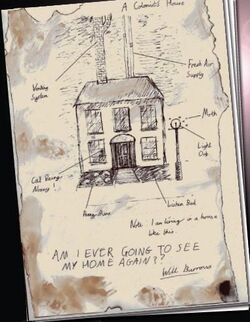 A Colonist's House
Venting
System
Fresh Air
Supply
Moth
Light
Orb
Call Being
Note I am living in a house
like this.
AM I EVER GOING TO SEE
MY HOME AGAIN??
Will Burrows